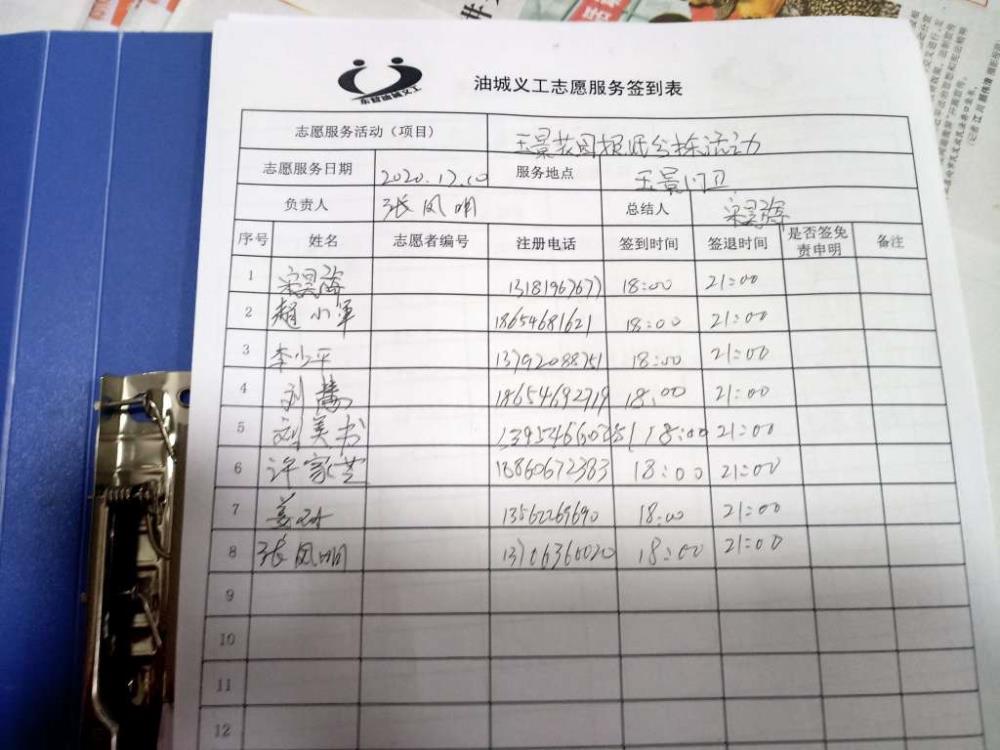 东营油城义工
油城义工志愿服务签到表
志愿服务活动（项目） 玉景花园报纸分拣活动
志愿服务日期 2020.12.10 服务地点 玉景门卫
负责人 张凤明 总结人 宋昙海
序号 姓名 志愿者编号 注册电话 签到时间 签退时间 是否签免责申明 备注
1 宋昙海 13181967677 18:00 21:00
2 赵小军 18654681621 18:00 21:00
3 李少平 13792088751 18:00 21:00
4 刘 18654692719 18:00 21:00
5 刘美书 18:00 21:00
6 许家芝 18860672383 18:00 21:00
7 姜 13562269690 18:00 21:00
8 张凤明 13706360020 18:00 21:00
9
10
11
12